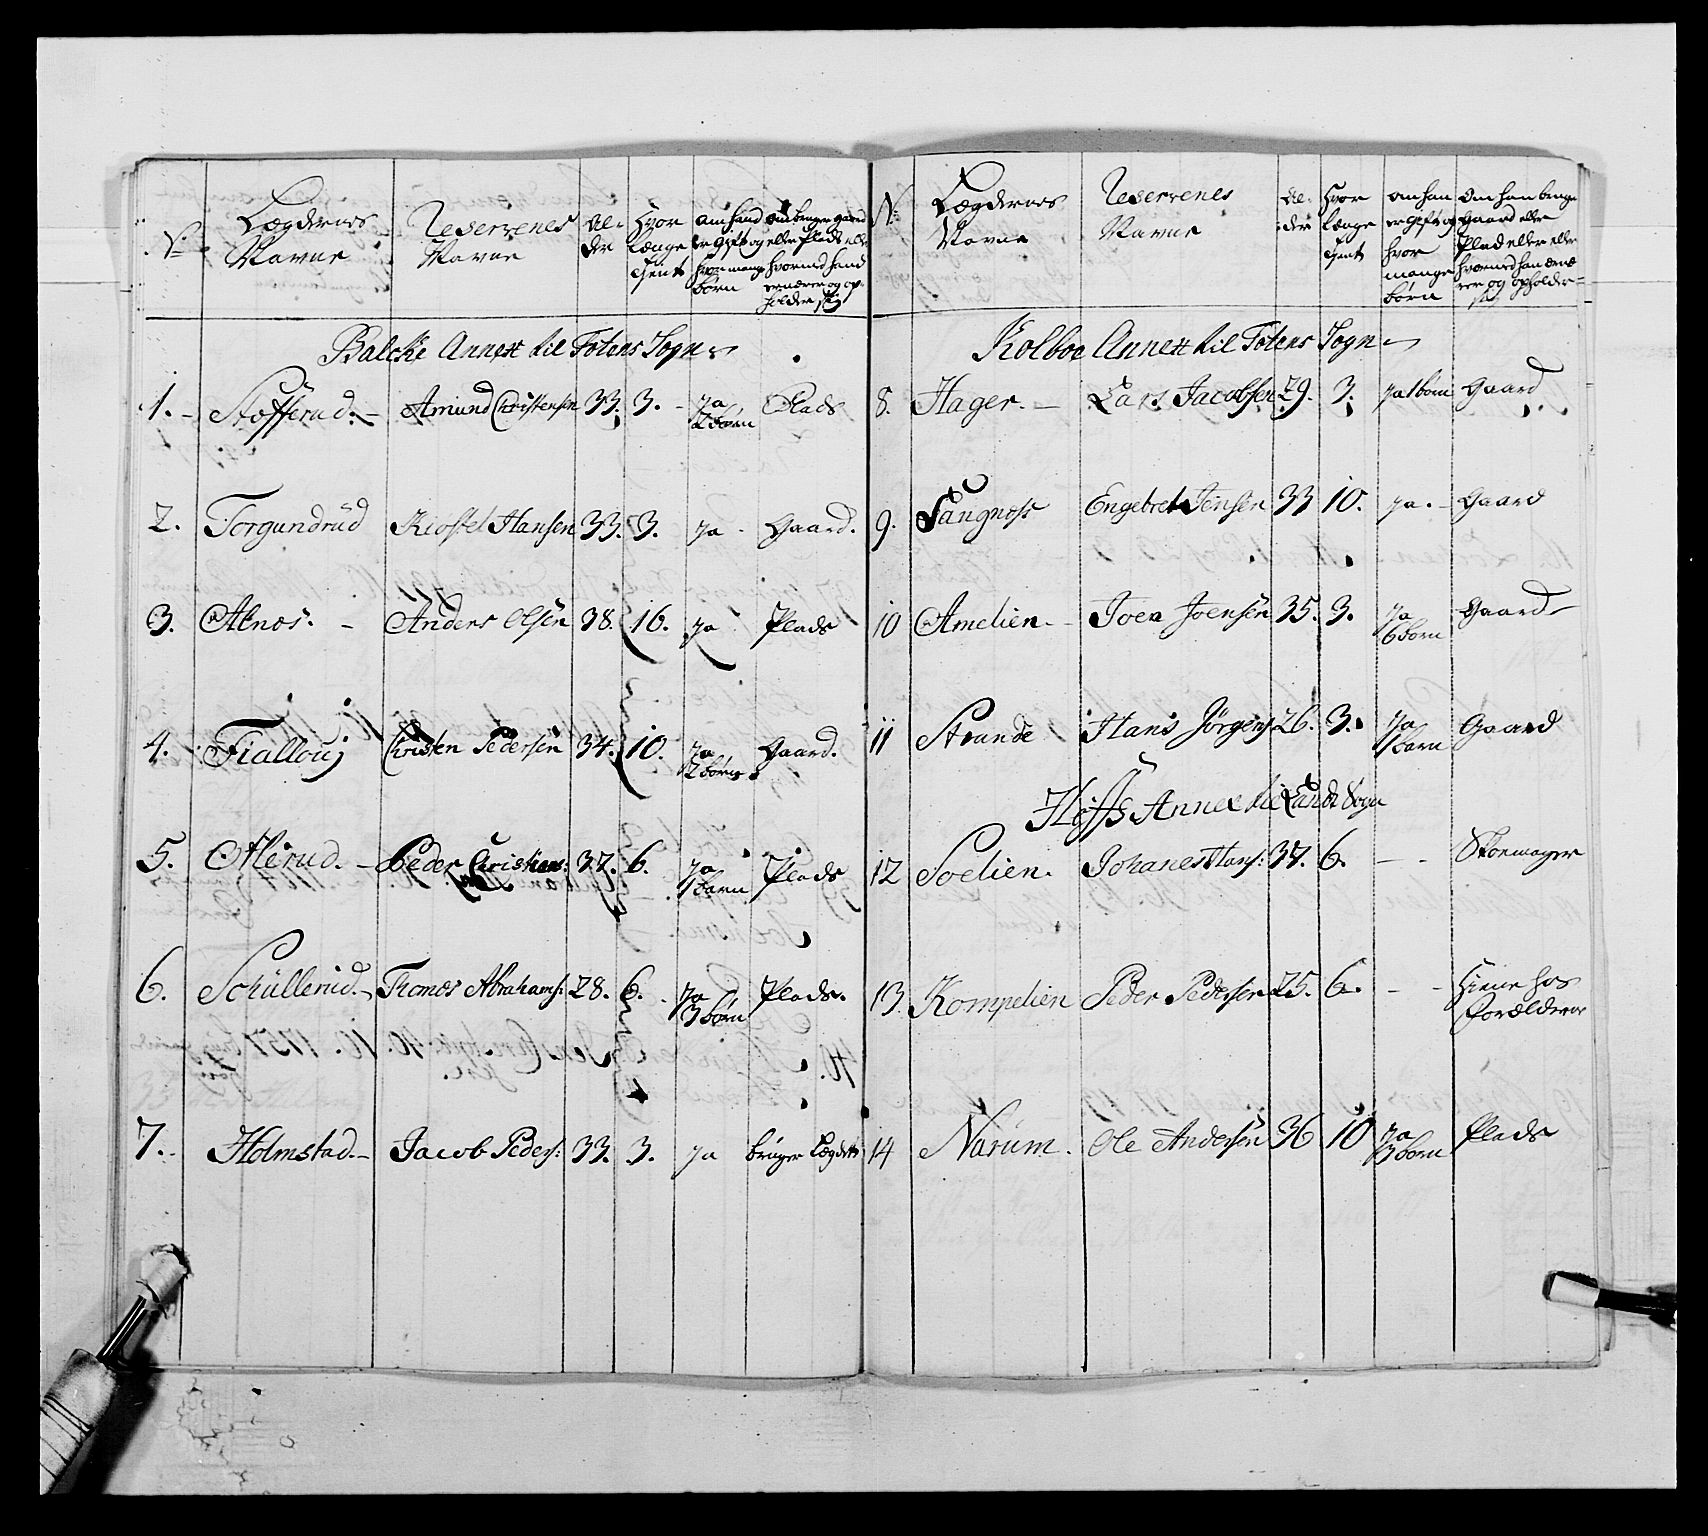 No
Lægdernes
Navne
Reservenes
Navne
Al-
der
Hvor
længe
tient
om hand
er gift og
hvor mange
børn
om bruger gaard
eller Plads eller
hvormed hand
ernærer og op-
holder sig
Balcke Annext til Totens Sogn
1. Stofferud. Amund Christensen 33. 3. ja Plads
2 børn
2. Torgundrud Kiøstel Hansen 33. 3. ja Gaard.
3. Alnæs. Anders Olsen 38. 16. ja Plads
4. Fiallouj Christen Pedersen 34. 10. ja Gaard.
2 børn
5. Alerud. Peder Christians: 37. 6. ja Plads
1 barn
6. Schüllerud. Thomas Abrahams: 28. 6. ja Plads.
3 børn
7. Holmstad. Jacob Peders: 33. 3. ja bruger Lægdet
No
Lægdernes
Navne
Reservenes
Navne
Al-
der
Hvor
længe
tient
om han
er gift og
hvor
mange
børn
Om han bruger
gaard eller
Plads eller eller
hvormed han ernæ-
rer og opholder
sig
Kolboe Annext til Totens Sogn
8. Hager. Lars Jacobsen 29. 3. ja 1 barn Gaard
9. Sangnæss Engebret Jensen 33 10. ja. Gaard
10 Amelien. Joen Joensen 35. 3. ja Gaard
6 børn
11 Strande Hans Jørgens 26. 3. ja Gaard
1 barn
Hoffs Annex til Lands Sogn
12 Soelien. Johanes Hans: 37. 6. - - Skoemager
13. Kompelien Peder Pedersen 25. 6. - - Hieme hos
Forældrene
14 Narum. Ole Andersen 36 10 ja Plads
3 børn